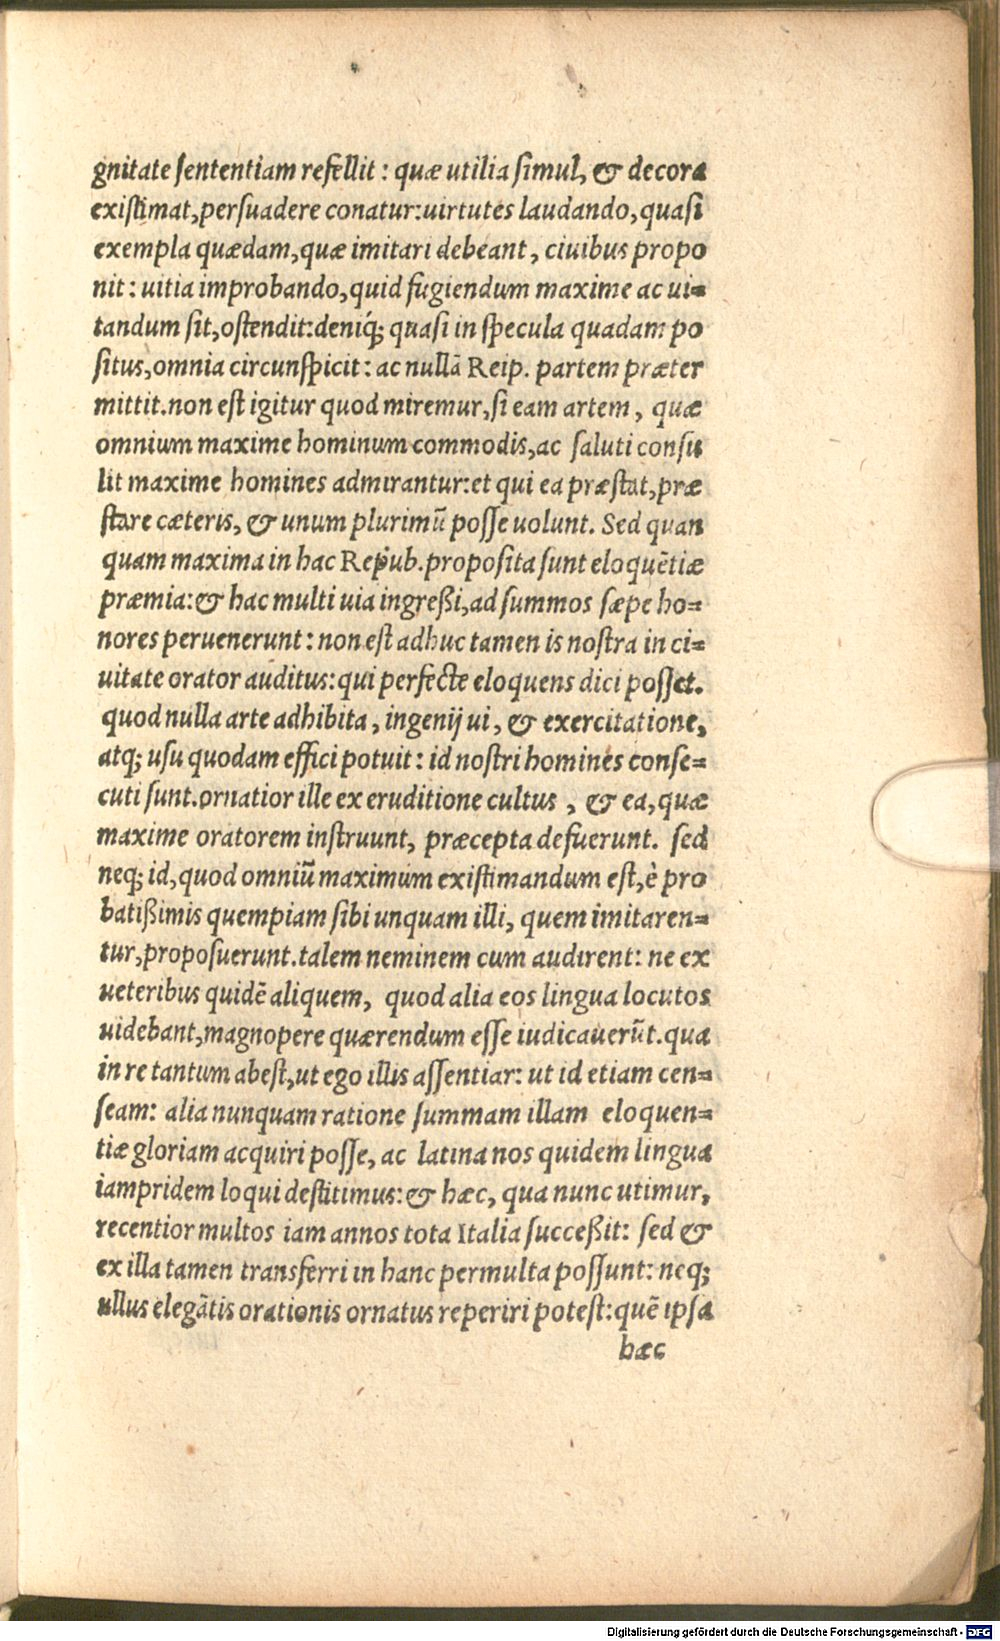 gnitate sententiam refellit: quæ utilia simul, & decora
existimat, persuadere conatur: uirtutes laudando, quasi
exempla quædam, quæ imitari debeant, ciuibus propo
nit: uitia improbando, quid fugiendum maxime ac ui=
tandum sit, ostendit: deniq́; quasi in specula quadam po
situs, omnia circunspicit: ac nullā Reip. partem præter
mittit. non est igitur quod miremur, si eam artem, quæ
omnium maxime hominum commodis, ac saluti consu
lit maxime homines admirantur: et qui ea præstat, præ
stare cæteris, & unum plurimū posse uolunt. Sed quan
quam maxima in hac Repub. proposita sunt eloquētiæ
præmia: & hac multi uia ingreßi, ad summos sæpe ho=
nores peruenerunt: non est adhuc tamen is nostra in ci=
uitate orator auditus: qui perfecte eloquens dici posset.
quod nulla arte adhibita, ingenij ui, & exercitatione,
atq; usu quodam effici potuit: id nostri homines conse=
cuti sunt. ornatior ille ex eruditione cultus, & ea, quæ
maxime oratorem instruunt, præcepta defuerunt. sed
neq; id, quod omniū maximum existimandum est, è pro
batißimis quempiam sibi unquam illi, quem imitaren=
tur, proposuerunt. talem neminem cum audirent: ne ex
ueteribus quidē aliquem, quod alia eos lingua locutos
uidebant, magnopere quærendum esse iudicauerūt. qua
in re tantum abest, ut ego illis assentiar: ut id etiam cen=
seam: alia nunquam ratione summam illam eloquen=
tiæ gloriam acquiri posse, ac latina nos quidem lingua
iampridem loqui destitimus: & hæc, qua nunc utimur,
recentior multos iam annos tota Italia succeßit: sed &
ex illa tamen transferri in hanc permulta possunt: neq;
ullus elegātis orationis ornatus reperiri potest: quē ipsa
hæc
Digitalisierung gefördert durch die Deutsche Forschungsgemeinschaft - DFG